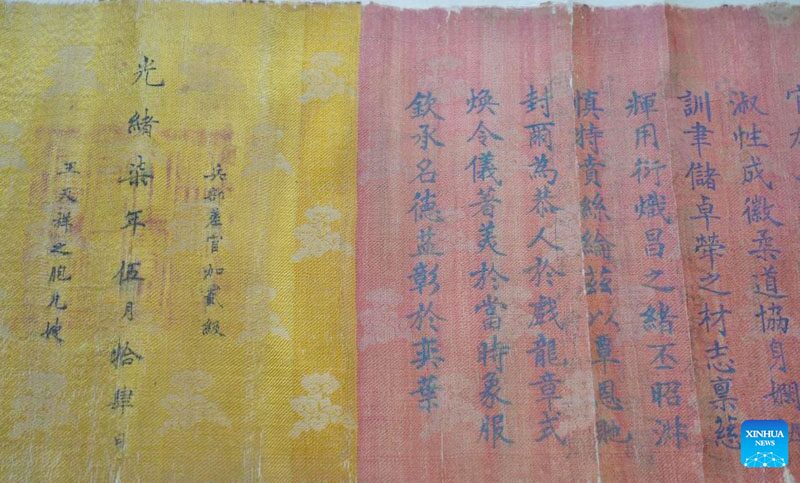 淑性成徽柔道協身嫻
訓聿儲卓犖之材志稟慈
輝用衍熾昌之緒丕昭淋
慎特賁絲綸茲以覃恩貤
封爾為恭人於戲龍章式
煥令儀著美於當時象服
欽承名德益彰於奕葉
兵部差官加貳級
光緒柒年伍月拾肆日
王天祥之胞兄嫂
XINHUA
NEWS